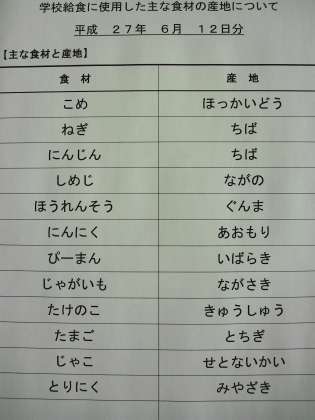 学校給食に使用した主な食材の産地について
平成　２７年　６月　１２日分
【主な食材と産地】
食　材　産　地
こめ　ほっかいどう
ねぎ　ちば
にんじん　ちば
しめじ　ながの
ほうれんそう　ぐんま
にんにく　あおもり
ぴーまん　いばらき
じゃがいも　ながさき
たけのこ　きゅうしゅう
たまご　とちぎ
じゃこ　せとないかい
とりにく　みやざき